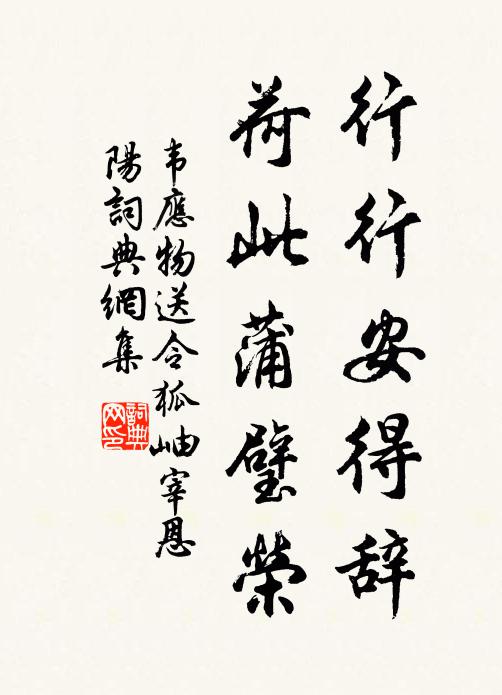 行行安得辞
荷此蒲璧榮
韦應物送令狐岫宰恩
陽詞典網集
詞典
网印